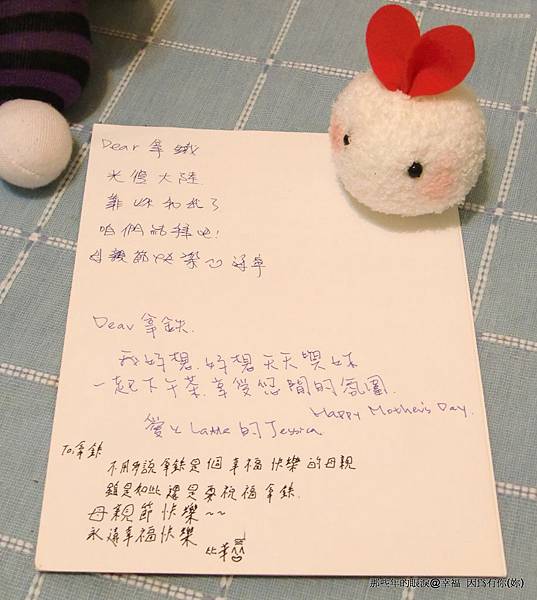 Dear 拿鐵
光復大陸
靠妳和我了
咱們品種吧!
母親節快樂
Dear 拿鉄.
我好想.好想天天與妳
一起下午茶.享受悠閒的氛圍.
Happy Mother's Day.
愛你Latte的Jessica.
To.拿鉄
不用多說拿鉄是個幸福快樂的母親
雖是如此還是要祝福拿鉄.
母親節快樂~~
永遠幸福快樂
那些年的眼淚@幸福 因為有你(妳)